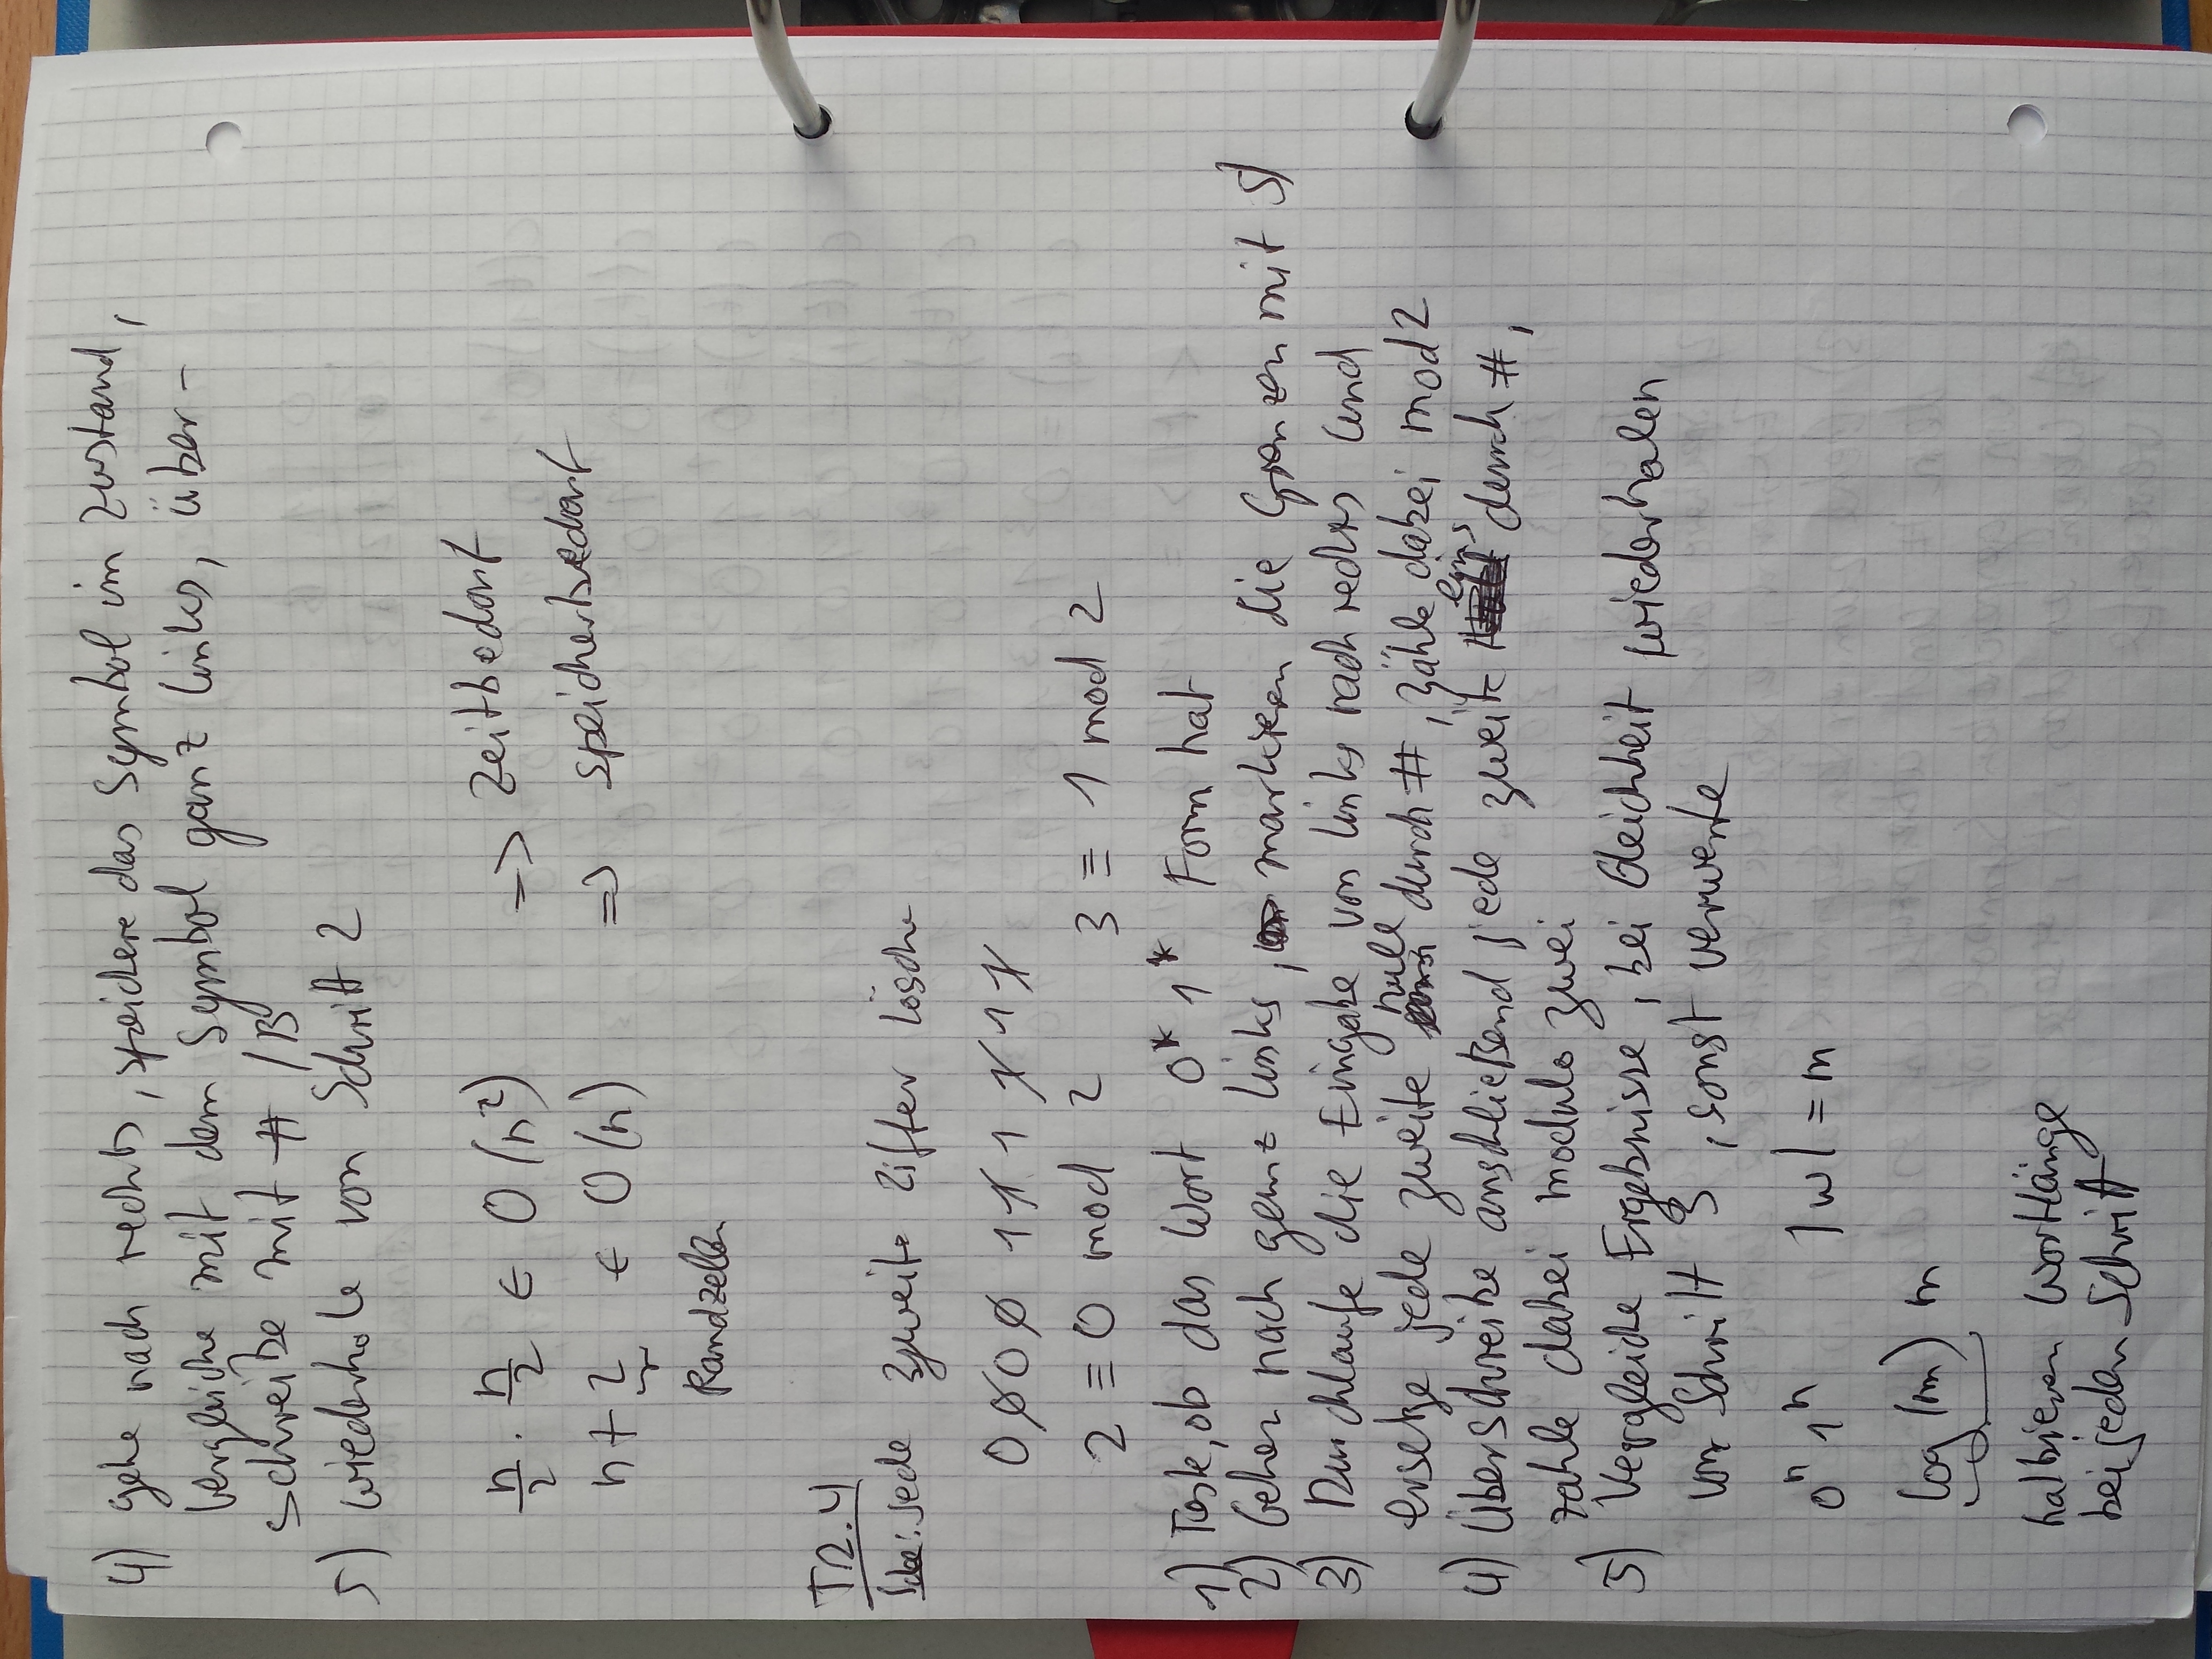 4) gehe nach rechts, speichere das Symbol im Zustand,
vergleiche mit dem Symbol ganz links, über-
schreibe mit # /B
5) wiederhole von Schritt 2
n/2 · n/2 ∈ O(n²) => Zeitbedarf
n+2 ∈ O(n) => Speicherbedarf
Randzellen
T2.4
Idee: jede zweite Ziffer lösche
0000 111111
2 ≡ 0 mod 2 3 ≡ 1 mod 2
1) Teste, ob das Wort 0* 1* Form hat
2) Gehen nach ganz links, markieren die Grenzen mit $
3) Durchlaufe die Eingabe von links nach rechts und
ersetze jede zweite null durch #, zähle dabei mod 2
4) Überschreibe anschließend jede zweite eins durch #,
zähle dabei modulo zwei
5) Vergleiche Ergebnisse, bei Gleichheit wiederholen
von Schritt 3, sonst verwerfe
0ⁿ 1ⁿ |w| = m
log(m) m
halbieren Wortlänge
bei jeden Schritt